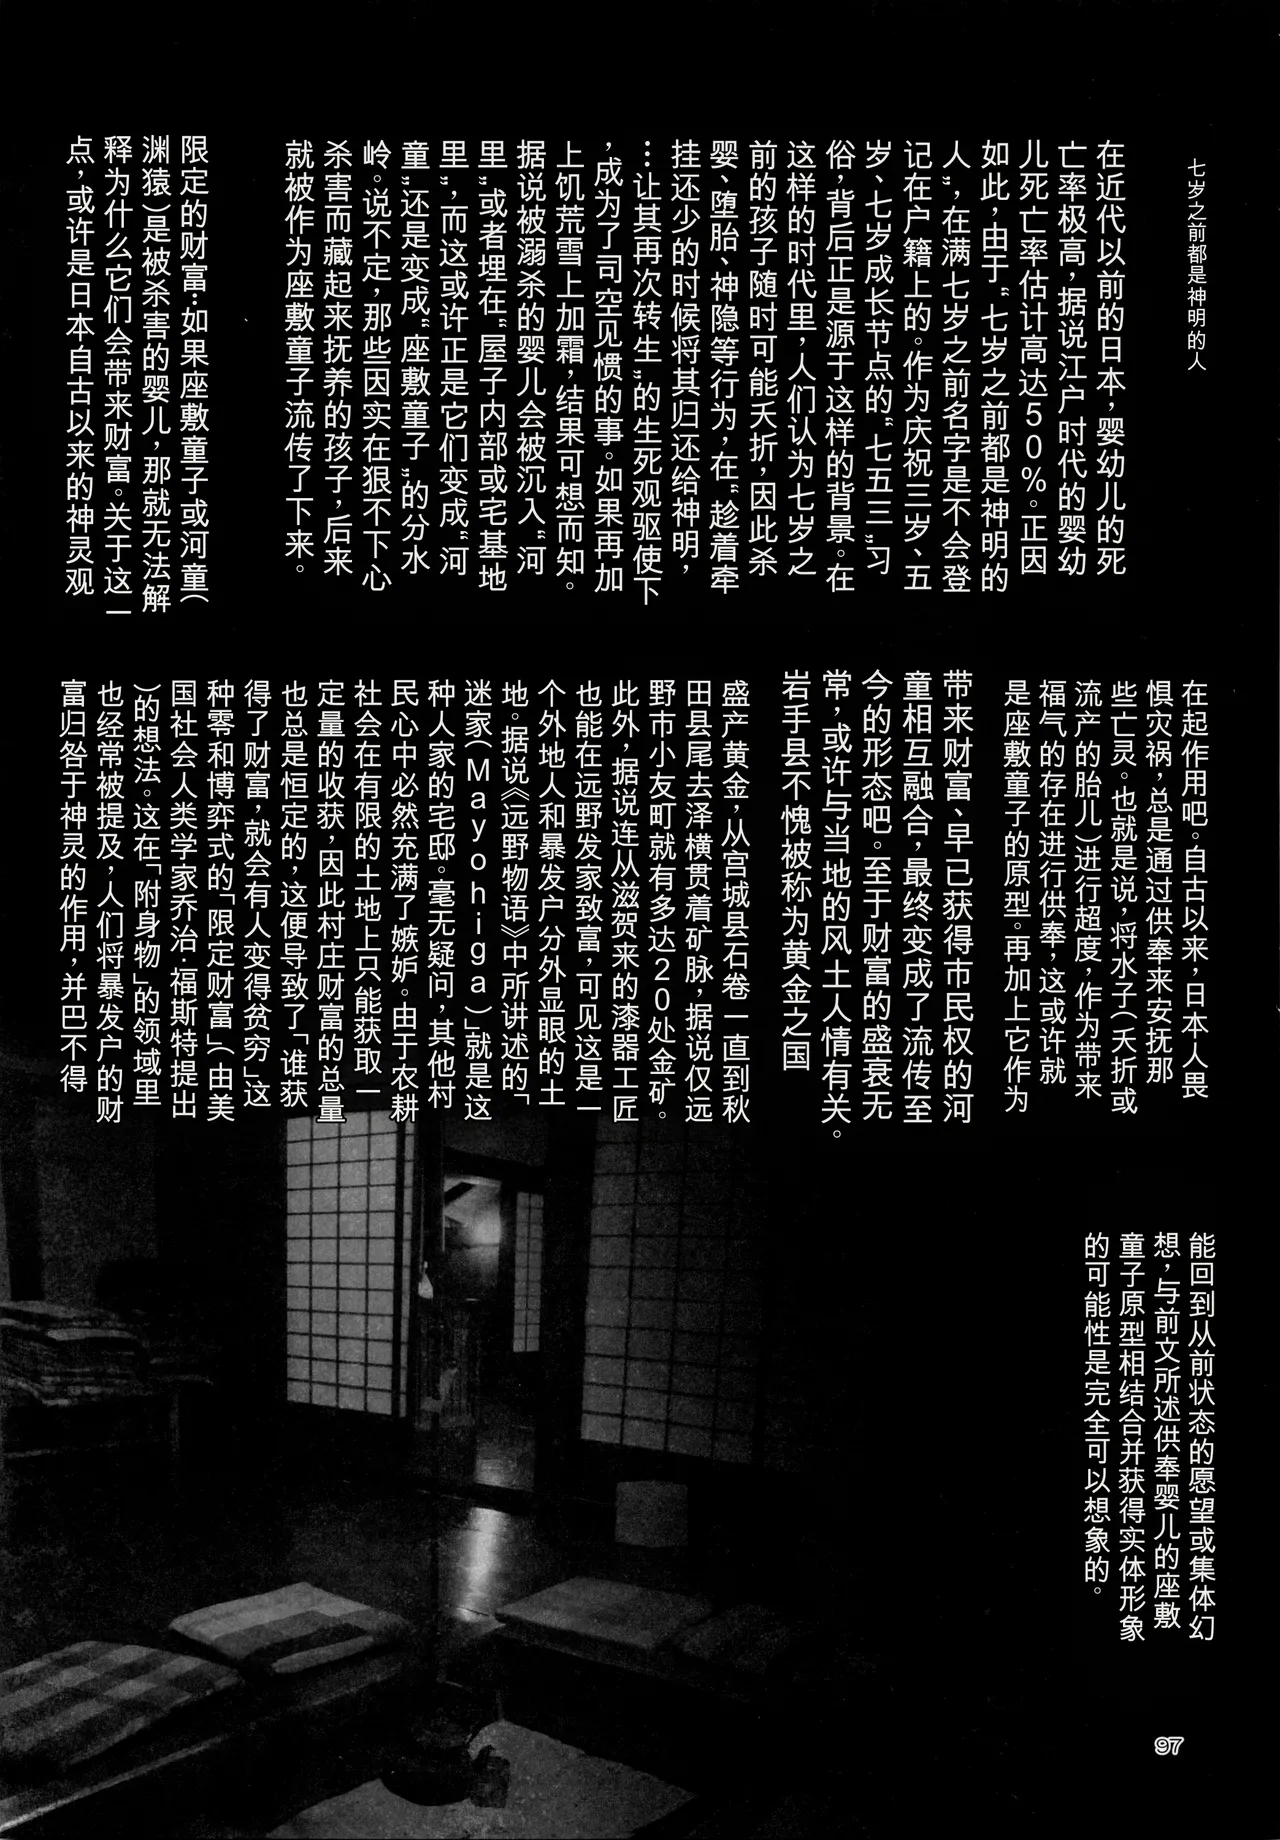 七岁之前都是神明的人
在近代以前的日本，婴幼儿的死
亡率极高，据说江户时代的婴幼
儿死亡率估计高达50%。正因
如此，由于“七岁之前都是神明的
人”，在满七岁之前名字是不会登
记在户籍上的。作为庆祝三岁、五
岁、七岁成长节点的“七五三”习
俗，背后正是源于这样的背景。在
这样的时代里，人们认为七岁之
前的孩子随时可能夭折，因此杀
婴、堕胎、神隐等行为，在“趁着牵
挂还少的时候将其归还给神明，
…让其再次转生”的生死观驱使下
，成为了司空见惯的事。如果再加
上饥荒雪上加霜，结果可想而知。
据说被溺杀的婴儿会被沉入“河
里”或者埋在“屋子内部或宅基地
里”，而这或许正是它们变成“河
童”还是变成“座敷童子”的分水
岭。说不定，那些因实在狠不下心
杀害而藏起来抚养的孩子，后来
就被作为座敷童子流传了下来。
限定的财富：如果座敷童子或河童（
渊猿）是被杀害的婴儿，那就无法解
释为什么它们会带来财富。关于这一
点，或许是日本自古以来的神灵观
在起作用吧。自古以来，日本人畏
惧灾祸，总是通过供奉来安抚那
些亡灵。也就是说，将水子（夭折或
流产的胎儿）进行超度，作为带来
福气的存在进行供奉，这或许就
是座敷童子的原型。再加上它作为
带来财富、早已获得市民权的河
童相互融合，最终变成了流传至
今的形态吧。至于财富的盛衰无
常，或许与当地的风土人情有关。
岩手县不愧被称为黄金之国
盛产黄金，从宫城县石卷一直到秋
田县尾去泽横贯着矿脉，据说仅远
野市小友町就有多达20处金矿。
此外，据说连从滋贺来的漆器工匠
也能在远野发家致富，可见这是一
个外地人和暴发户分外显眼的土
地。据说《远野物语》中所讲述的「
迷家（Mayohiga）」就是这
种人家的宅邸。毫无疑问，其他村
民心中必然充满了嫉妒。由于农耕
社会在有限的土地上只能获取一
定量的收获，因此村庄财富的总量
也总是恒定的，这便导致了「谁获
得了财富，就会有人变得贫穷」这
种零和博弈式的「限定财富」（由美
国社会人类学家乔治·福斯特提出
）的想法。这在「附身物」的领域里
也经常被提及，人们将暴发户的财
富归咎于神灵的作用，并巴不得
能回到从前状态的愿望或集体幻
想，与前文所述供奉婴儿的座敷
童子原型相结合并获得实体形象
的可能性是完全可以想象的。
97